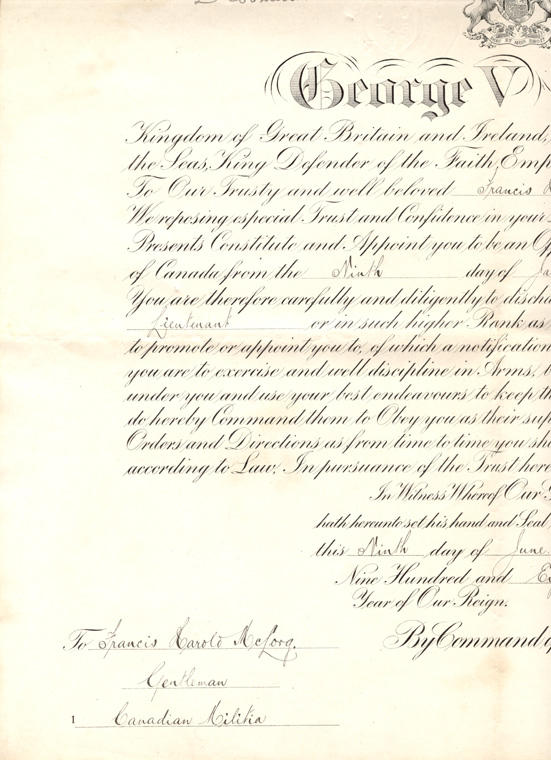 George V
Kingdom of Great Britain and Ireland,
the Seas, King Defender of the Faith, Emp
To Our Trusty and well beloved Francis
We reposing especial Trust and Confidence in your
Presents Constitute and Appoint you to be an Off
of Canada from the Ninth day of Ja
You are therefore carefully and diligently to discha
Lieutenant or in such higher Rank as
to promote or appoint you to, of which a notification
you are to exercise and well discipline in Arms,
under you and use your best endeavours to keep th
do hereby Command them to Obey you as their sup
Orders and Directions as from time to time you sha
according to Law. In pursuance of the Trust here
In Witness Whereof Our
hath hereunto set his hand and Seal
this Ninth day of June
Nine Hundred and
Year of Our Reign.
To Francis Harold
By Command of
Gentleman
1 Canadian Militia